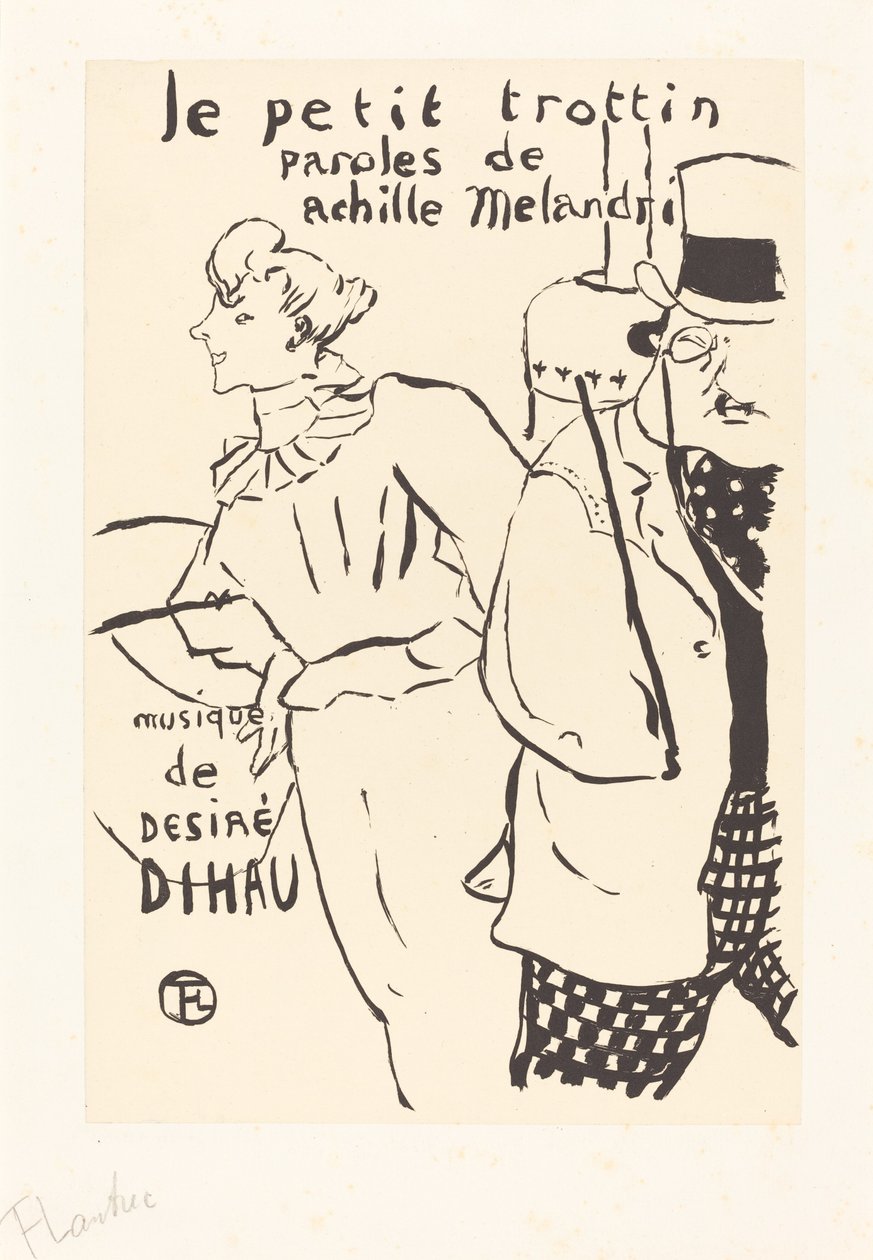 le petit trottin
paroles de
achille Melandri
musique
de
DESIRÉ
DIHAU
HTL
HTLautrec